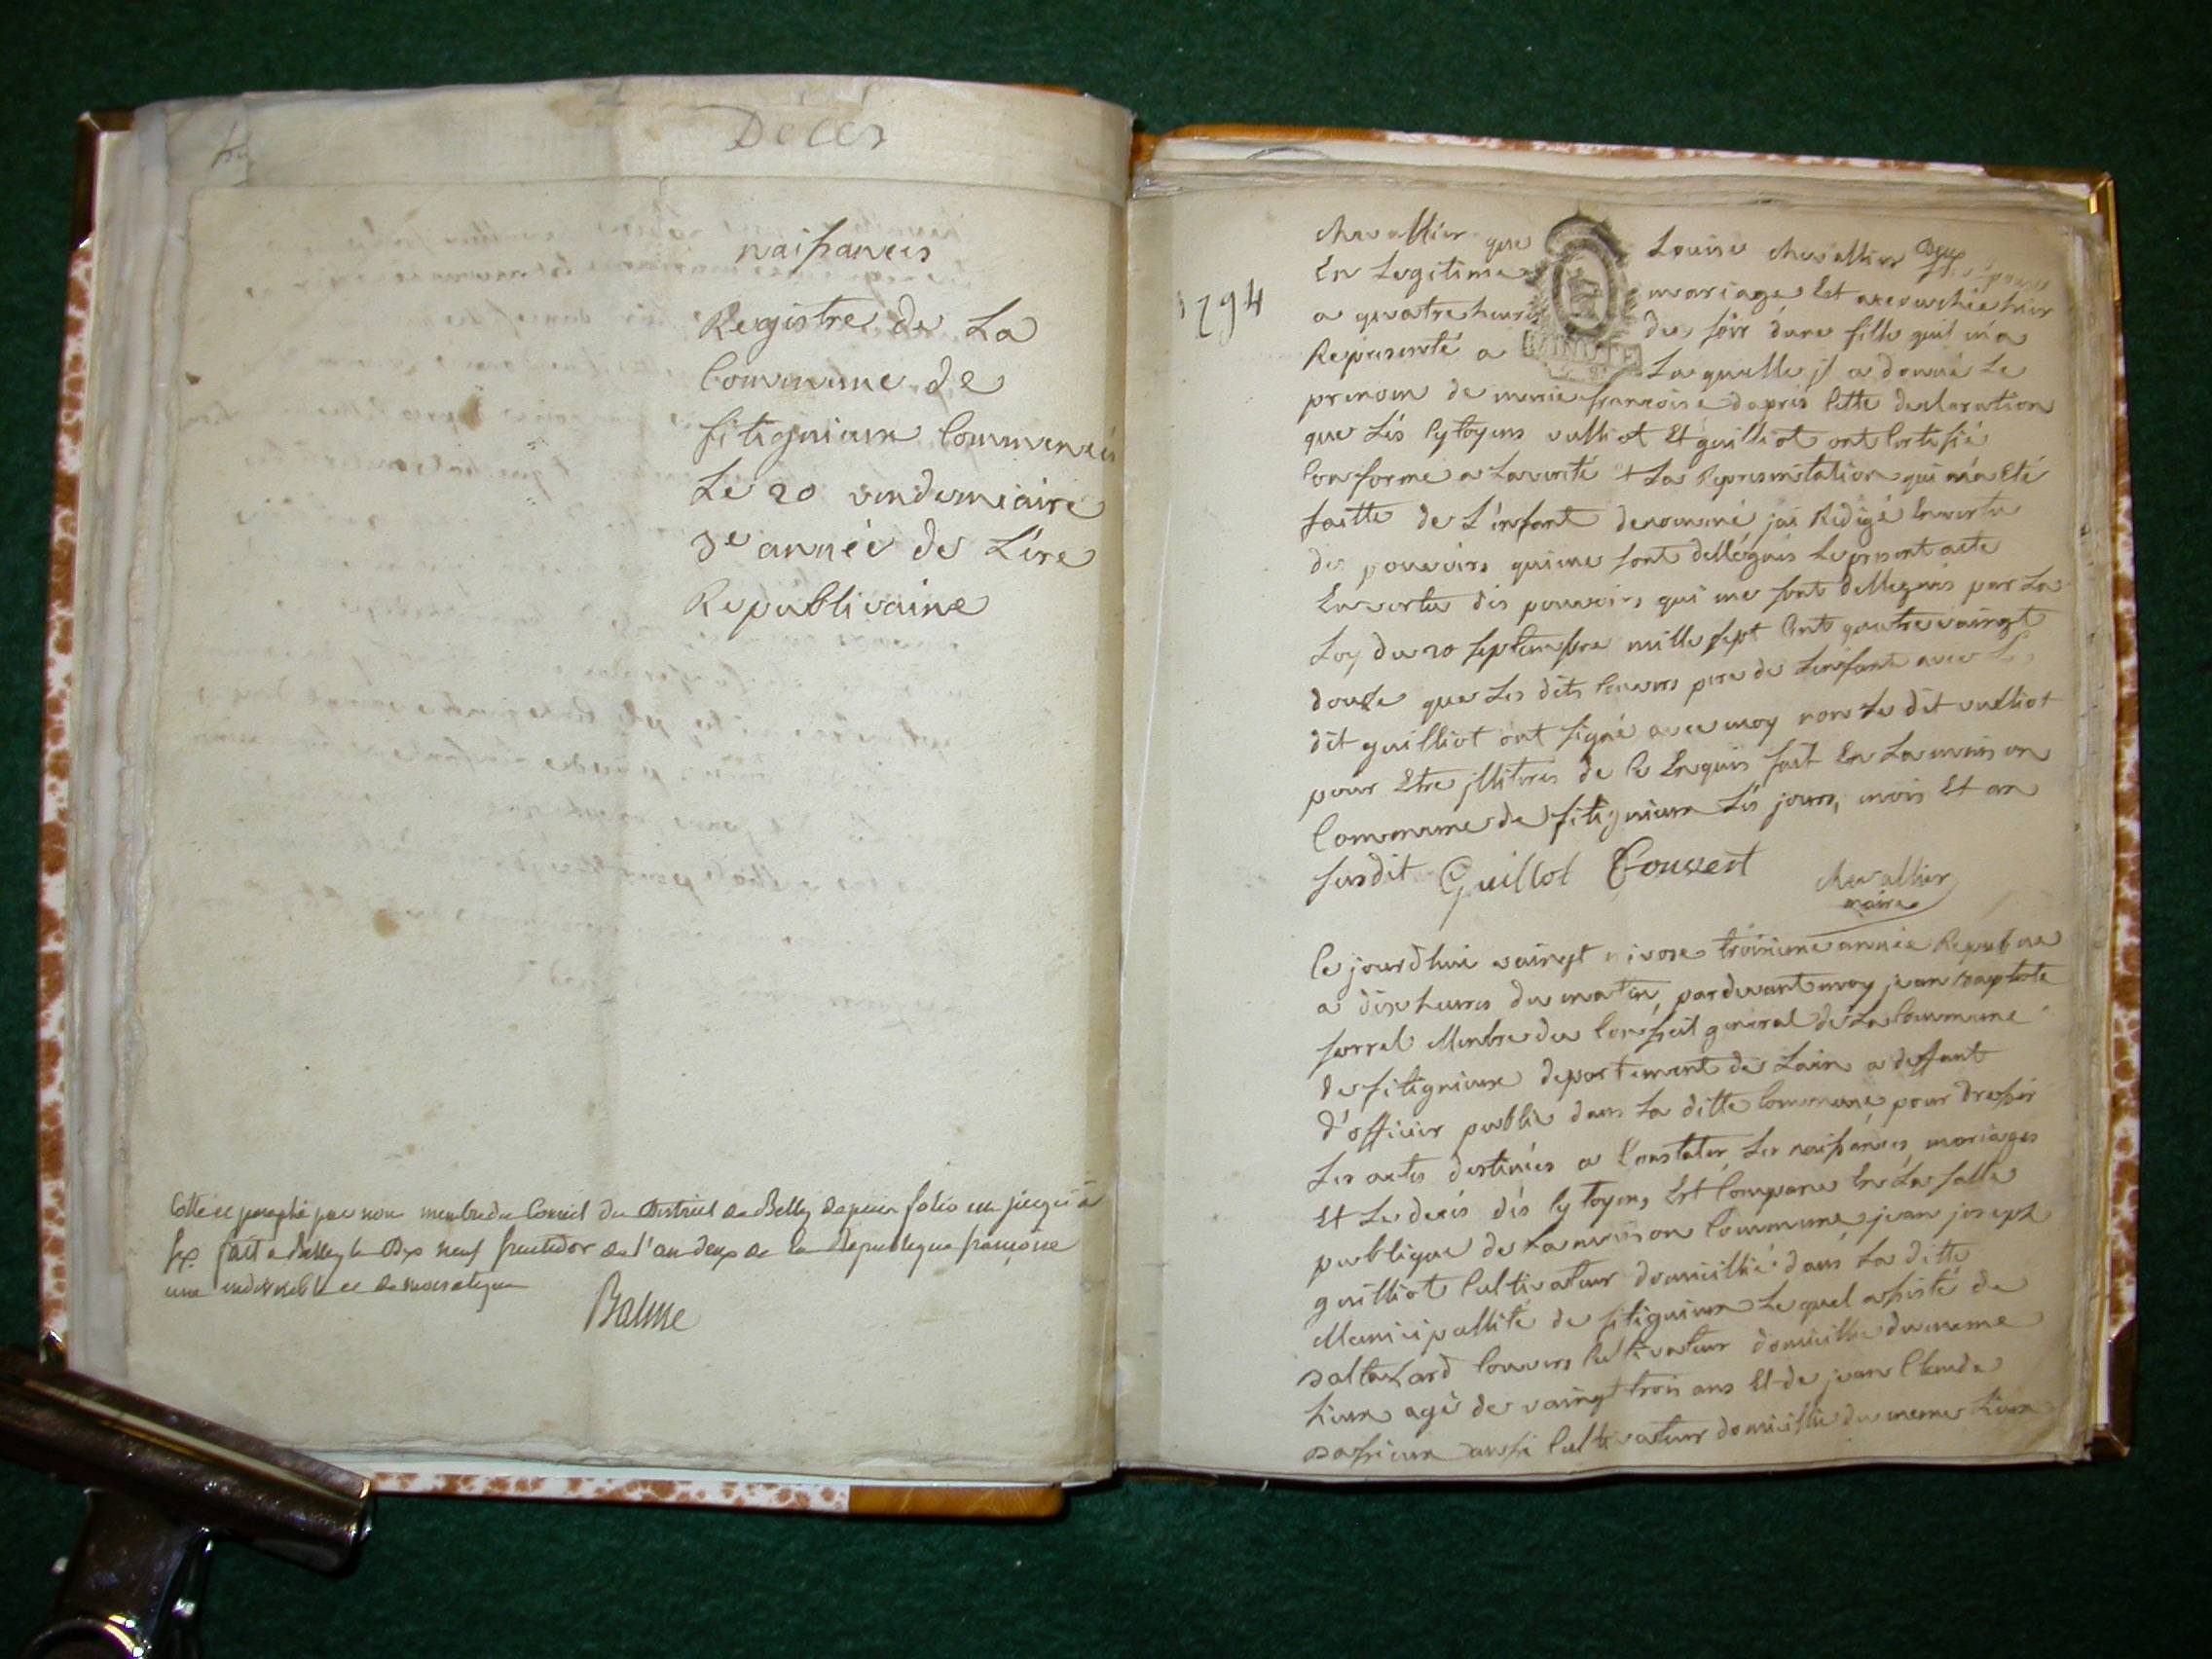 Décès
naissances
Registre de La
Commune de
fitignieux Commencés
Le 20 vendemiaire
3e année de L'ére
Republicaine
Cotté et paraphé par nous membre du Conseil du District de Belley depuis folio un jusqu'a
six fait a Belley le dix neuf fructidor de l'an deux de la Republique françoise
une indivisible et democratique
Balme
1794
chevallier que Louise chevallier
En Legitime mariage Est accouchée hier
a quatre heures du soir d'une fille quil m'a
Representé a Laquelle jl a donné Le
MINUTE
prenom de marie francoise dapres Cette declaration
que Lés Cytoyens vulliot Et guilliot ont Certifié
Conforme a Laverité & La Representation qui m'a Eté
faitte de L'enfant denommé jai Redigé Envertu
des pouvoirs qui me sont dellégués Le present acte
Envertu dés pouvoirs qui me sont dellegués par La
Loy du 20 septembre mille sept Cent quatre vaingt
douze que Les dits Couvers pere de Lenfant avec Le
dit guilliot ont signé avec moy non Le dit vulliot
pour Etre jllitéres de Ce Enquis fait En Lamaison
Commune de fitignieux Lés jours, mois Et an
susdit Guillot Couvert
chevallier
maire
Ce jourdhui vaingt nivose troisieme année Repub ne
a dix heures du matin, pardevant moy jean Baptiste
forral Membre du Conseil general de La Commune
de fitignieux departement de Lain a deffaut
d'officier public dans La ditte Commune, pour dresser
Les actes destinés a Constater Les naissances, mariages
Et Le decés dés Cytoyens, Est Comparu En La salle
publique de La maison Commune, jean joseph
guilliot Cultivateur domicillié dans La ditte
Municipallité de fitignieux Lequel assisté de
Baltazard Couvers Cultivateur domicillié du meme
Lieux agé de vaingt trois ans Et de jean Claude
Bassieux aussi Cultivateur domicillié du meme Lieux